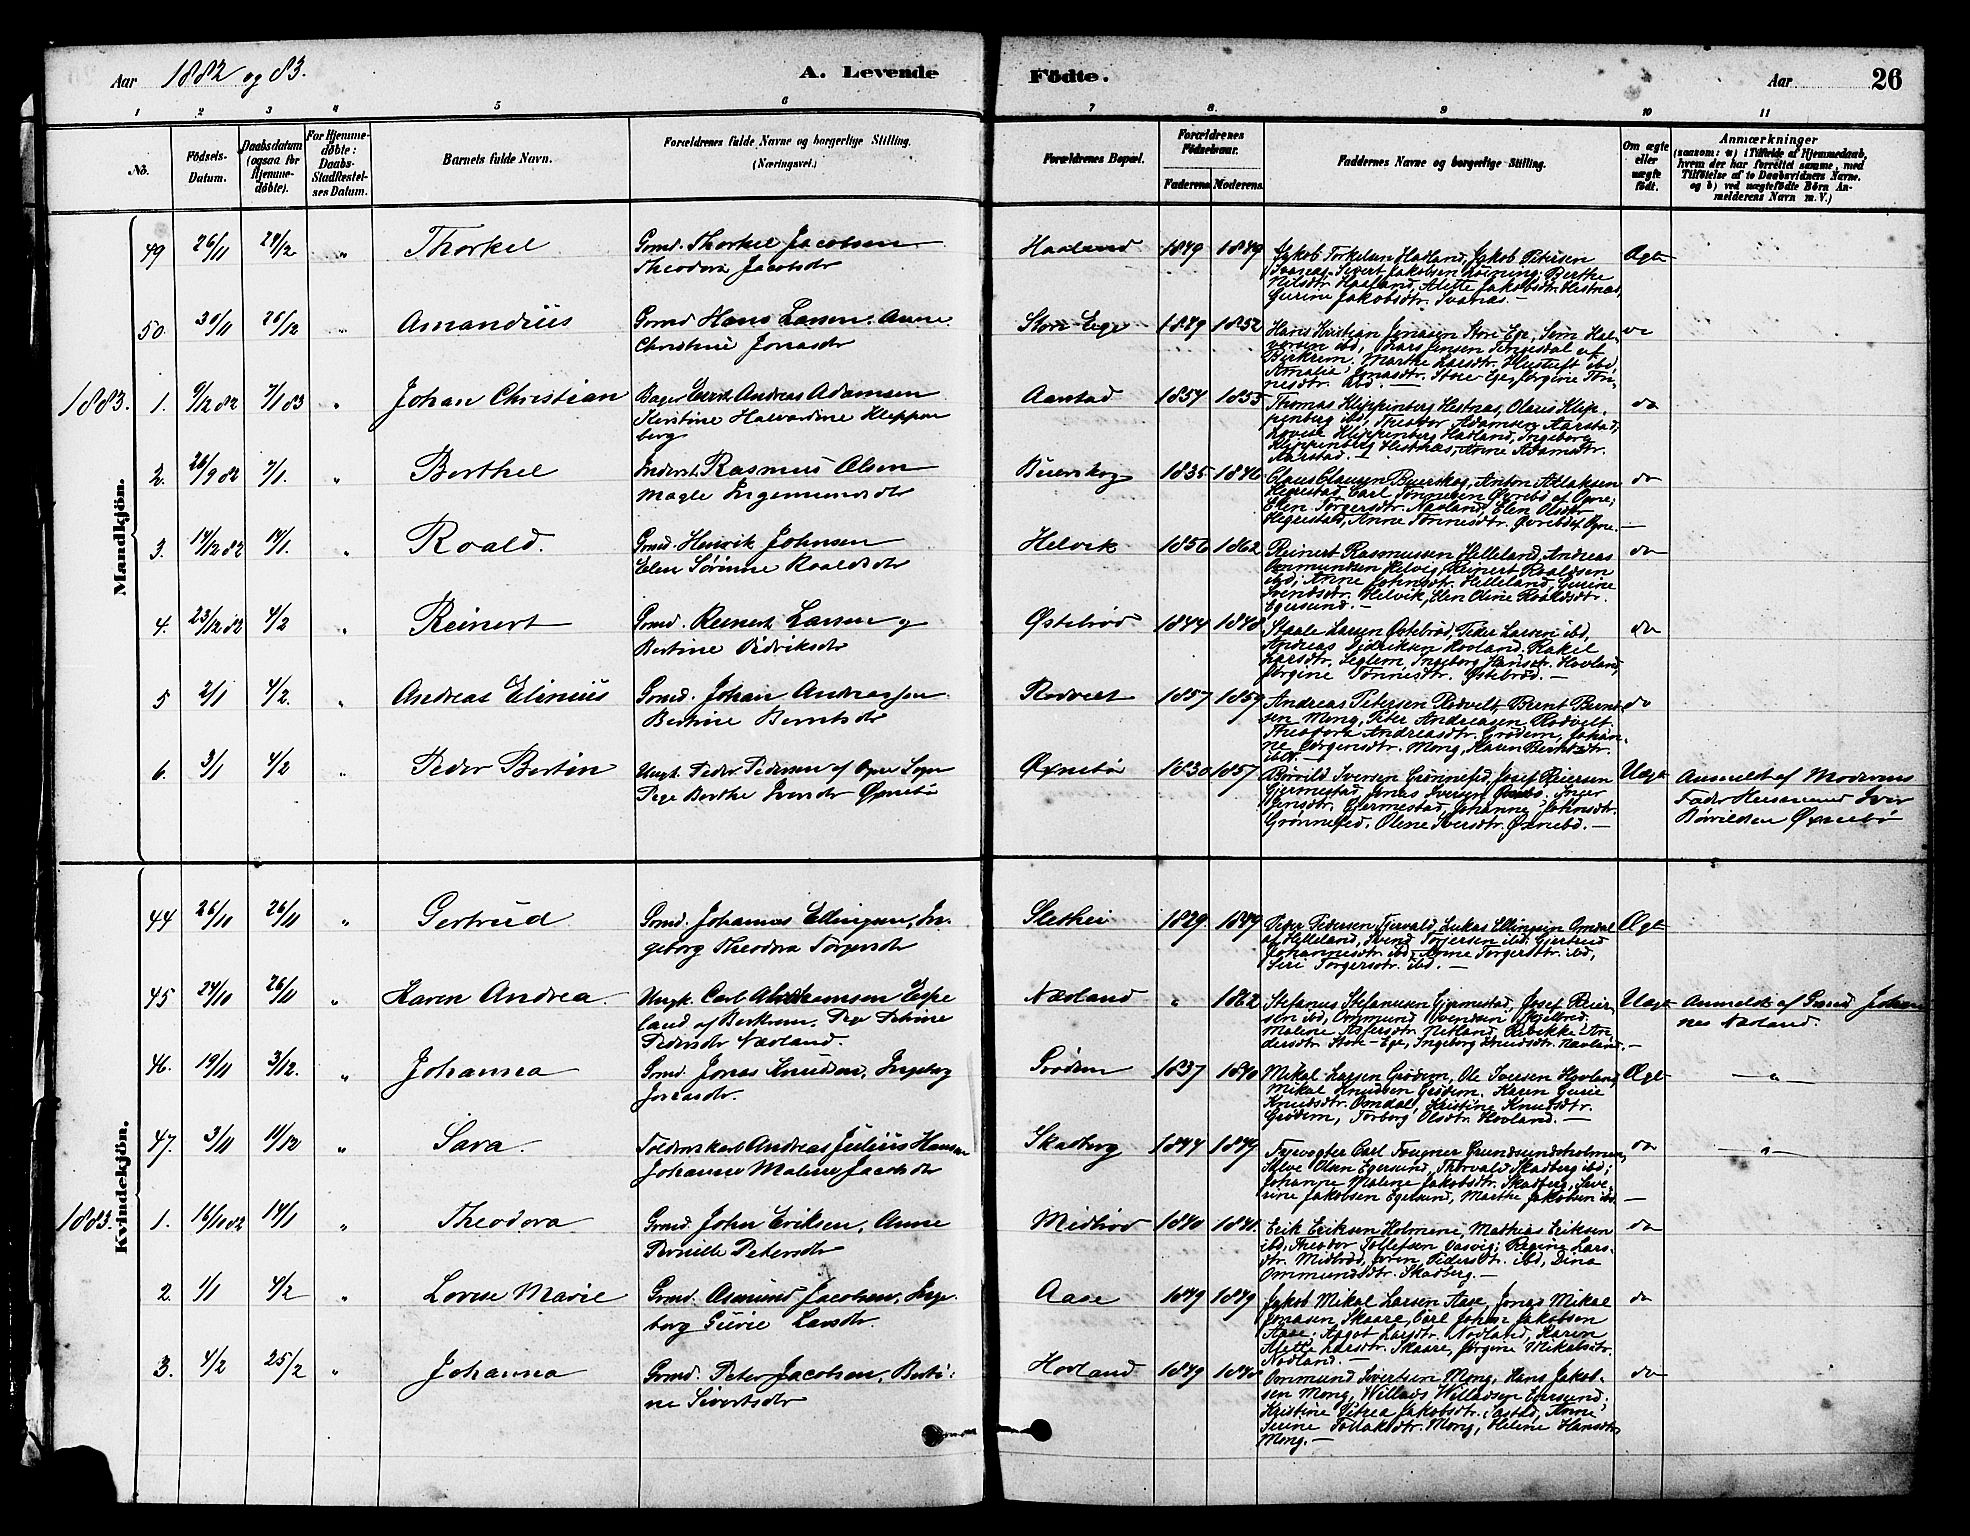 Aar 1882 og 83. A. Levende Födte. Aar 26
1 2 3 4 5 6 7 8. 9 10 11
No. Födsels-Datum. Daabsdatum (ogsaa for Hjemme-döbte). For Hjemme-döbte: Daabs-Stadfæstel-ses Datum. Barnets fulde Navn. Forældrenes fulde Navne og borgerlige Stilling. (Næringsvei.) Forældrenes Bopæl. Forældrenes Födselsaar. Faderens Moderens. Faddernes Navne og borgerlige Stilling. Om ægte eller uægte födt. Anmærkninger (saasom: a) i Tilfælde af Hjemmedaab, hvem der har forrettet samme, med Tilföielse af to Daabsvidners Navne. og b) ved uægtefödte Börn An-melderens Navn m. V.)
Mandkjön.
49 26/11 "
Thorkel
Gmd. Thorkel Jacobsen
Theodora Jacobsdtr
Haaland 1849 1849
Jakob Torkelsen Hadland, Jakob Petersen
Svanæs, Sivert Jakobsen Berthe
Nilsdtr. Haaland, Alette Jakobsdtr. Hestnæs,
Gurine Jakobsdtr. Svanæs. —
Ægte
50. 30/11 26/12 "
Amandius
Gmd Hans Larsen. Anne
Christine Jonasdtr
Store Ege 1849 1852
Hans Kristian Jonasen Store Ege, Sem Hal-
vorsen ibd, Lars Jensen Tengesdal af
Birkrem, Marthe Larsdtr. ibd,
Amalie Jonasdtr. Store Ege, Jørgine Tøn-
nesdtr. ibd. —
1883. 1. 9/12 82 7/1 83 "
Johan Christian
Bager Andreas Adamsen
Kirstine Halvardine Kleppen
berg
Aarstad 1857 1855
Thomas Klippenberg Hestnæs, Olaus Klip-
penberg ibd, Theodor Adamsen Aarstad,
Lovise Klippenberg Hadland, Ingeborg
Klippenberg Hestnæs, Anne Adamsdtr.
Aarstad. —
do
2. 26/9 82 7/1. "
Berthel
Inderst. Rasmus Olsen
Magle Ingemundsdtr
Buerskog 1835 1846
Claus Clausen Buerskog, Anton Aslaksen
Hegrestad, Carl Tønnesen Øvrebø af Ogne;
Elen Torgersdtr. Nævland, Elen Olsdtr
Hegrestad, Anne Tønnesdtr. Øvrebø af Ogne. —
do
3. 14/12 82 14/1. "
Roald.
Gmd. Henrik Johnsen
Elen Sørinne Roaldsdtr
Helvik 1856 1862
Reinert Rasmussen Helleland, Andreas
Ommundsen Helvig, Reinert Roaldsen
ibd; Anne Johnsdtr. Helleland, Gurine
Svendsdtr. Helvik, Elen Oline Roaldsdtr.
Egersund. —
do
4. 23/12 82 4/2 "
Reinert
Gmd. Reinert Larsen og
Bertine Didriksdtr
Østebrød 1844 1848
Staale Larsen Østebrød, Peder Larsen ibd,
Andreas Didriksen Hovland, Rakel
Larsdtr. Seglem, Ingeborg Hansdtr. Hovland,
Jørgine Tønnesdtr. Østebrød. —
do
5 2/1 4/2. "
Andreas Elinius
Gmd. Johan Andreassen
Bertine Berntsdtr
Rodvelt 1857 1859
Andreas Petersen Rodvelt, Bernt Bernt-
sen Mong, Peter Andreasen Rodvelt.
Theodora Andreasdtr. Grødem, Johan-
ne Jørgensdtr. Mong, Karen Berntsdtr.
ibd. —
do
6. 3/1 4/2 "
Peder Bertin
Ungk. Peder Pedersen af Ogne Sogn
Pige Berthe Iversdtr Øxnebø
Øxnebø 1830 1857
Børild Iversen Grønnefed, Josef Reiersen
Gjermestad, Jonas Iversen Øxnebø, Inger
Jensdtr. Gjermestad, Johanne Johnsdtr.
Grønnefed. Olene Iversdtr. Øxnebø. —
Uægte
Anmeldt af Moderens
Fader Huusmand Iver
Børildsen Øxnebø
Kvindekjön.
44 26/10 26/11 "
Gertrud
Gmd. Johannes Ellingsen, In-
geborg Theodora Torgersdtr
Slethei 1829 1849
Peder Pedersen Tjørvald, Lukas Ellingsen Omdal
af Helleland, Svend Torjersen ibd; Gjertrud
Johannesdtr ibd, Anne Torgersdtr. ibd,
Siri Torgersdtr. ibd. —
Ægte
45 24/10 26/11 "
Karen Andrea.
Ungk. Carl Abrahamsen Espe
land af Berkrem. Pige Petrine
Pedersdtr Nævland.
Nævland " 1862
Stefanus Stefanusen Gjermestad, Josef Reier-
sen ibd, Ommund Svendsen
Malene Asgersdtr. Netland, Rebekke An-
dersdtr. Store-Ege, Ingeborg Knudsdtr. Nævland. —
Uægte
Anmeldt af Gmd Johan
nes Nævland.
46. 19/11 3/12. "
Johanna
Gmd. Jonas Knudsen, Ingeborg
Jonasdtr.
Grødem 1837 1840
Mikal Larsen Grødem, Ole Iversen Hovland,
Mikal Knudsen Grødem, Karen Gurie
Knudsdtr. Omdal, Kristine Knudsdtr.
Grødem, Torborg Olsdtr. Hovland. —
Ægte
— " —
47. 3/11 "
Sara.
Toldoerskarl Andreas Julius Hansen
Johanne Maline Jacobsdtr
Skadberg 1844 1849
Fyrvogter Carl Fougner Grundsundsholmen,
Salve Olsen Egersund, Thorvald Skadberg ibd;
Johanne Malene Jakobsdtr. Skadberg, Seve-
rine Jakobsen Egersund, Marthe Jakobsen ibd. —
do
— " —
1883. 1. 16/10 82 14/1 "
Theodora
Gmd. John Eriksen, Anne
Pernille Petersdtr
Midbrød 1840 1841
Erik Eriksen Holmene, Mathias Eriksen
ibd, Theodor Tollefsen Vasvig; Regine Lars-
dtr. Midbrød, Søren Pedersdtr. ibd, Dina
Ommundsdtr. Skadberg. —
do
2. 1/1 4/2 "
Lovise Marie
Gmd. Osmund Jacobsen, Inge-
borg Gurie Larsdtr.
Aase 1849 1849
Jakob Mikal Larsen Aase, Jonas Mikal
Jonasen Skaare, Carl Johan Jakobsen
Aase; Aagot Larsdtr. Nodland, Karen
Alette Larsdtr. Skaare, Jørgine Mikalsdtr.
Nodland. —
do
3. 4/2 25/2 "
Johanna
Gmd. Peter Jacobsen, Berti-
ne Sivertsdtr
Hovland 1849 1840
Ommund Sivertsen Mong, Hans Jakob-
sen Mong, Willads Willadsen Egersund;
Kristine Petrea Jakobsdtr. Anne
Serine Tollaksdtr. Mong, Helene Hansdtr.
Mong. —
do